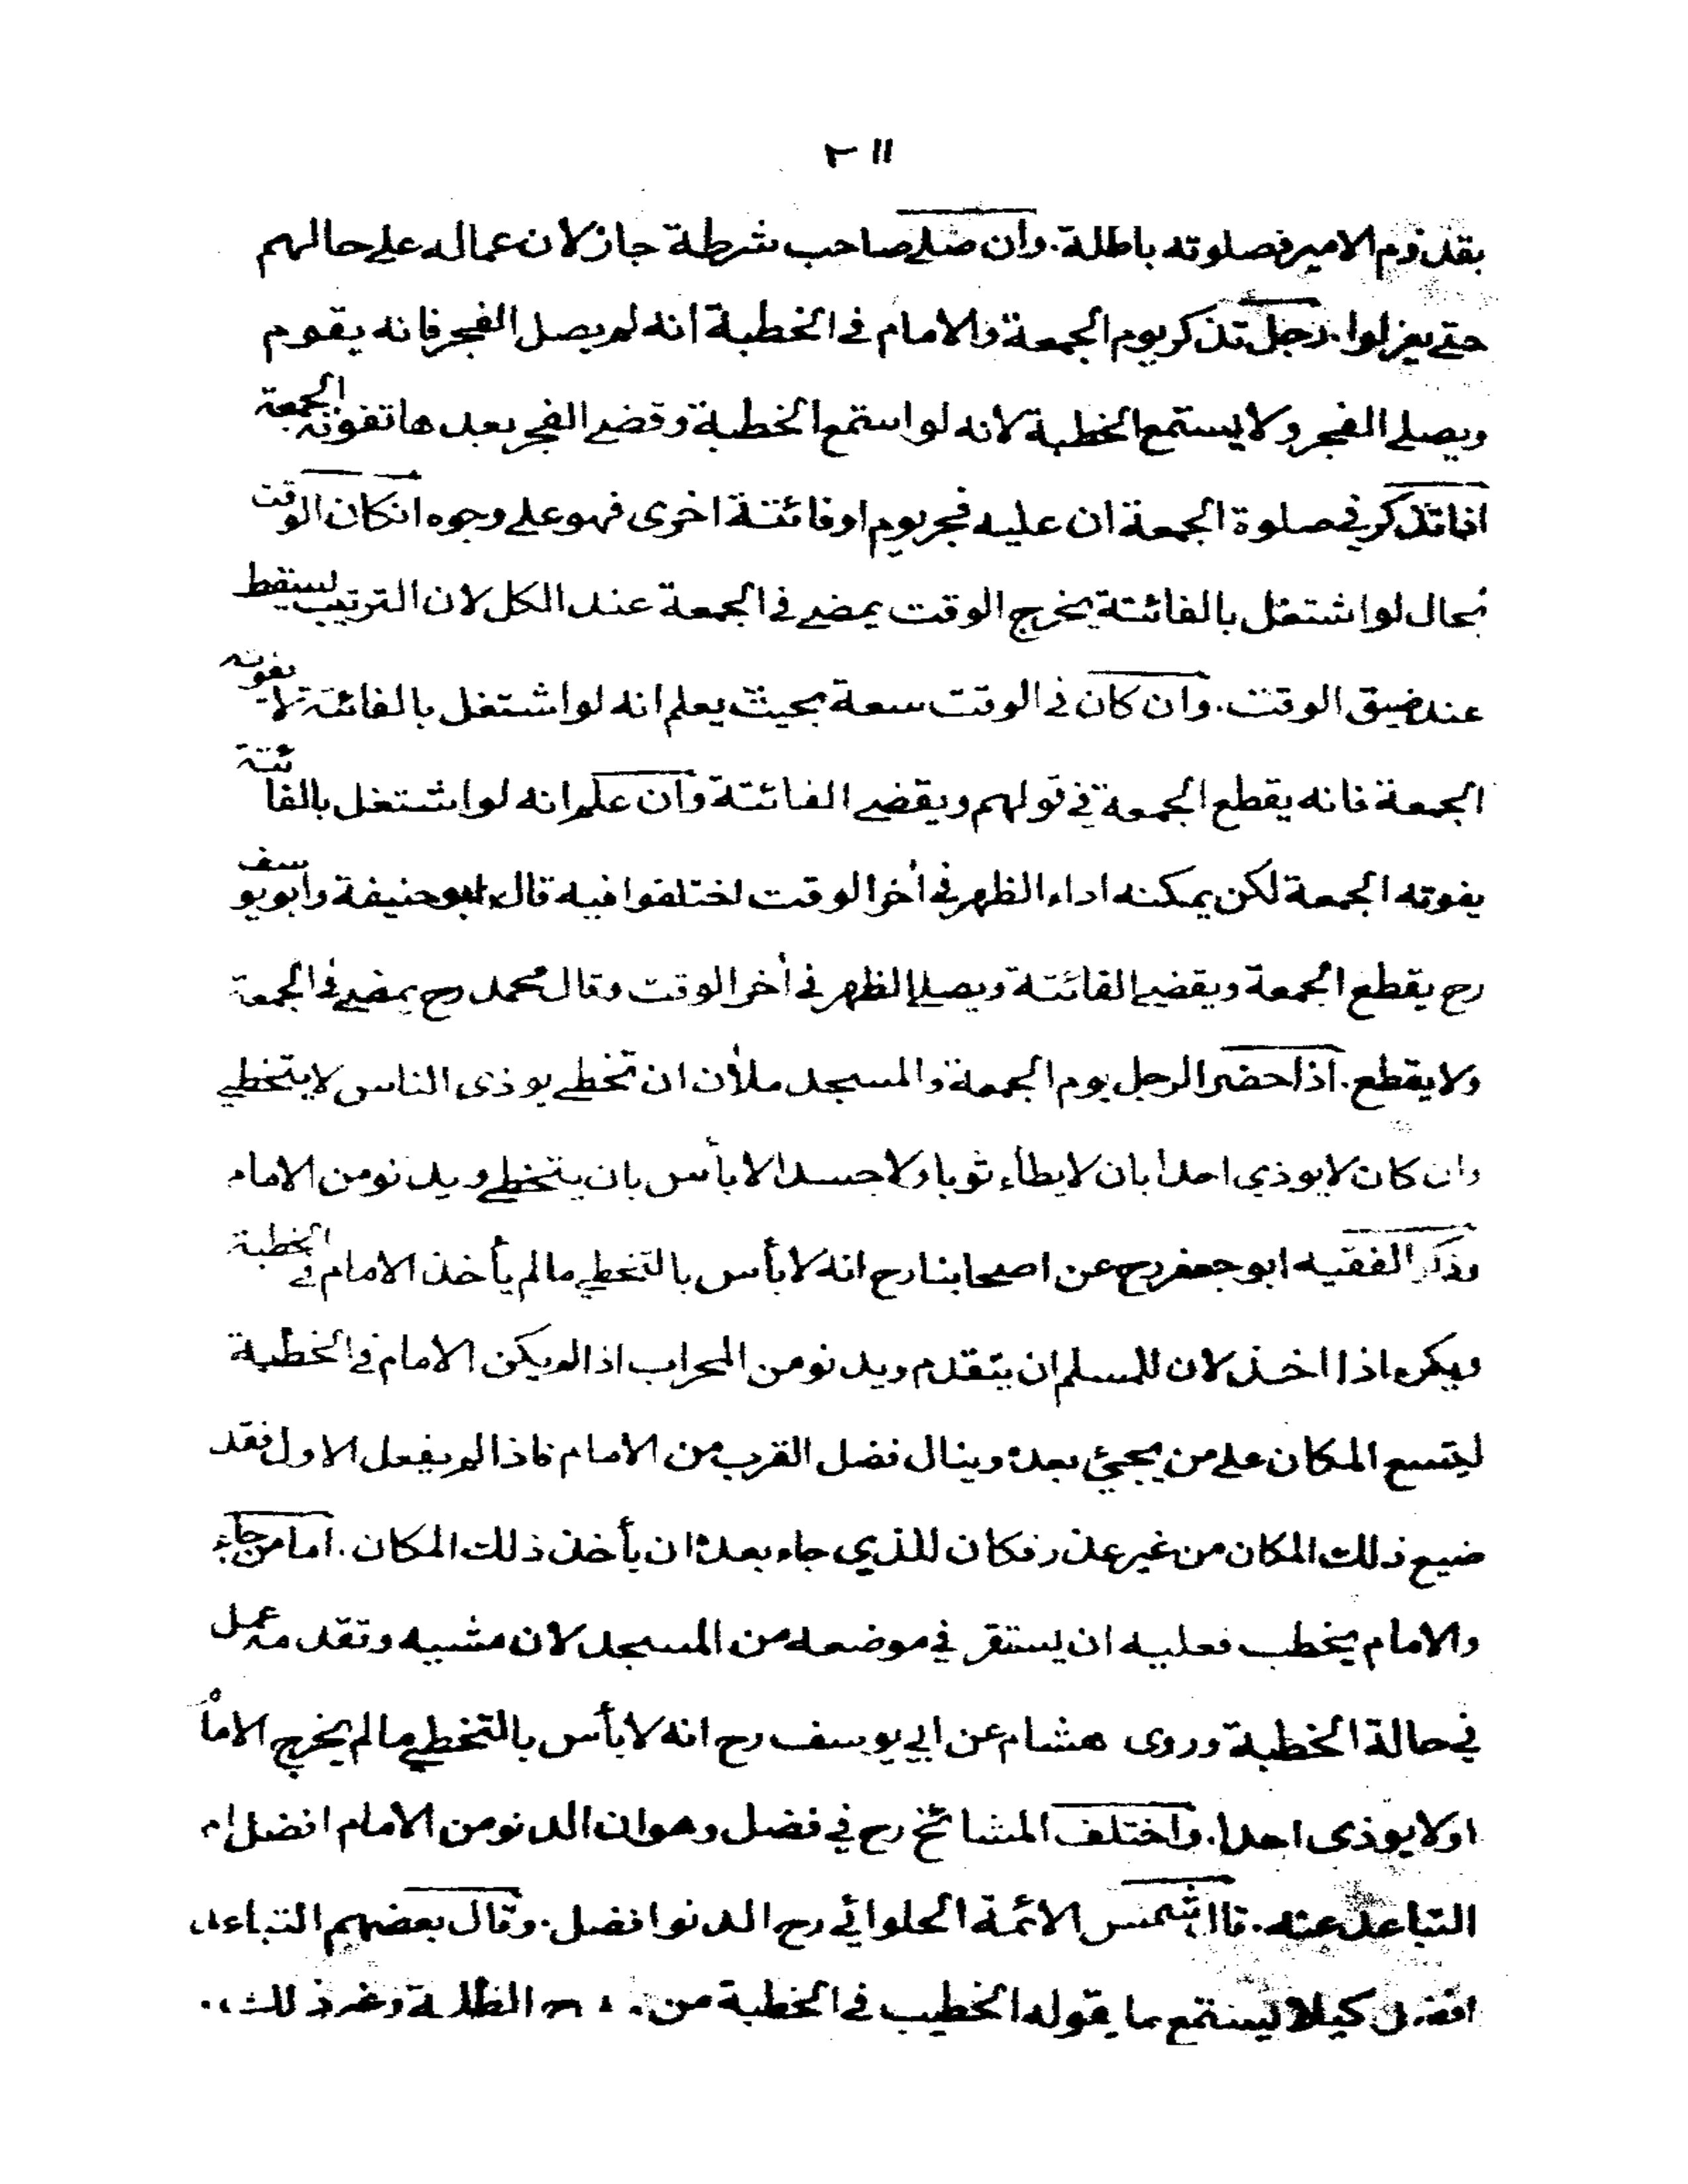 ٢١١
بقدوم الامير فصلوته باطلة. وان صلى صاحب شرطة جاز لان عماله على حالهم
حتى يعزلوا. رجل تذكر يوم الجمعة والامام فى الخطبة انه لم يصل الفجر فانه يقوم
ويصلى الفجر ولا يستمع الخطبة لانه لو استمع الخطبة وقضى الفجر بعدها تفوته الجمعة
اذا تذكر في صلوة الجمعة ان عليه فجر يوم او فائتة اخرى فهو على وجوه ان كان الوقت
بحال لو اشتغل بالفائتة يخرج الوقت يمضى فى الجمعة عند الكل لان الترتيب يسقط
عند ضيق الوقت. وان كان فى الوقت سعة بحيث يعلم انه لو اشتغل بالفائتة لا تفوته
الجمعة فانه يقطع الجمعة في قولهم ويقضى الفائتة وان علم انه لو اشتغل بالفائتة
يفوته الجمعة لكن يمكنه اداء الظهر فى أخر الوقت اختلفوا فيه قال ابو حنيفة وابو يوسف
رح يقطع الجمعة ويقضى الفائتة ويصلى الظهر فى أخر الوقت وقال محمد رح يمضى فى الجمعة
ولا يقطع. اذا حضر الرجل يوم الجمعة والمسجد ملأن ان تخطى يوذى الناس لا يتخطى
وان كان لا يوذي احدا بان لا يطاء ثوبا ولا جسدا لا بأس بان يتخطى ويدنو من الامام
وذكر الفقيه ابو جعفر رح عن اصحابنا رح انه لا بأس بالتخطي ما لم يأخذ الامام في الخطبة
ويكره اذا اخذ لان للمسلم ان يتقدم ويدنو من المحراب اذا لم يكن الامام فى الخطبة
ليتسع المكان على من يجيئ بعده وينال فضل القرب من الامام فاذا لم يفعل الاول فقد
ضيع ذلك المكان من غير عذر فكان للذي جاء بعده ان يأخذ ذلك المكان. اما من جاء
والامام يخطب فعليه ان يستقر في موضعه من المسجد لان مشيه وتقدمه عمل
في حالة الخطبة وروى هشام عن ابي يوسف رح انه لا بأس بالتخطي ما لم يخرج الامام
او لا يوذى احدا. واختلف المشائخ رح في فضل وهو ان الدنو من الامام افضل ام
التباعد عنه. قال شمس الائمة الحلوائي رح الدنو افضل. وقال بعضهم التباعد
افضل كيلا يستمع ما يقوله الخطيب فى الخطبة من الظلمة وغير ذلك.